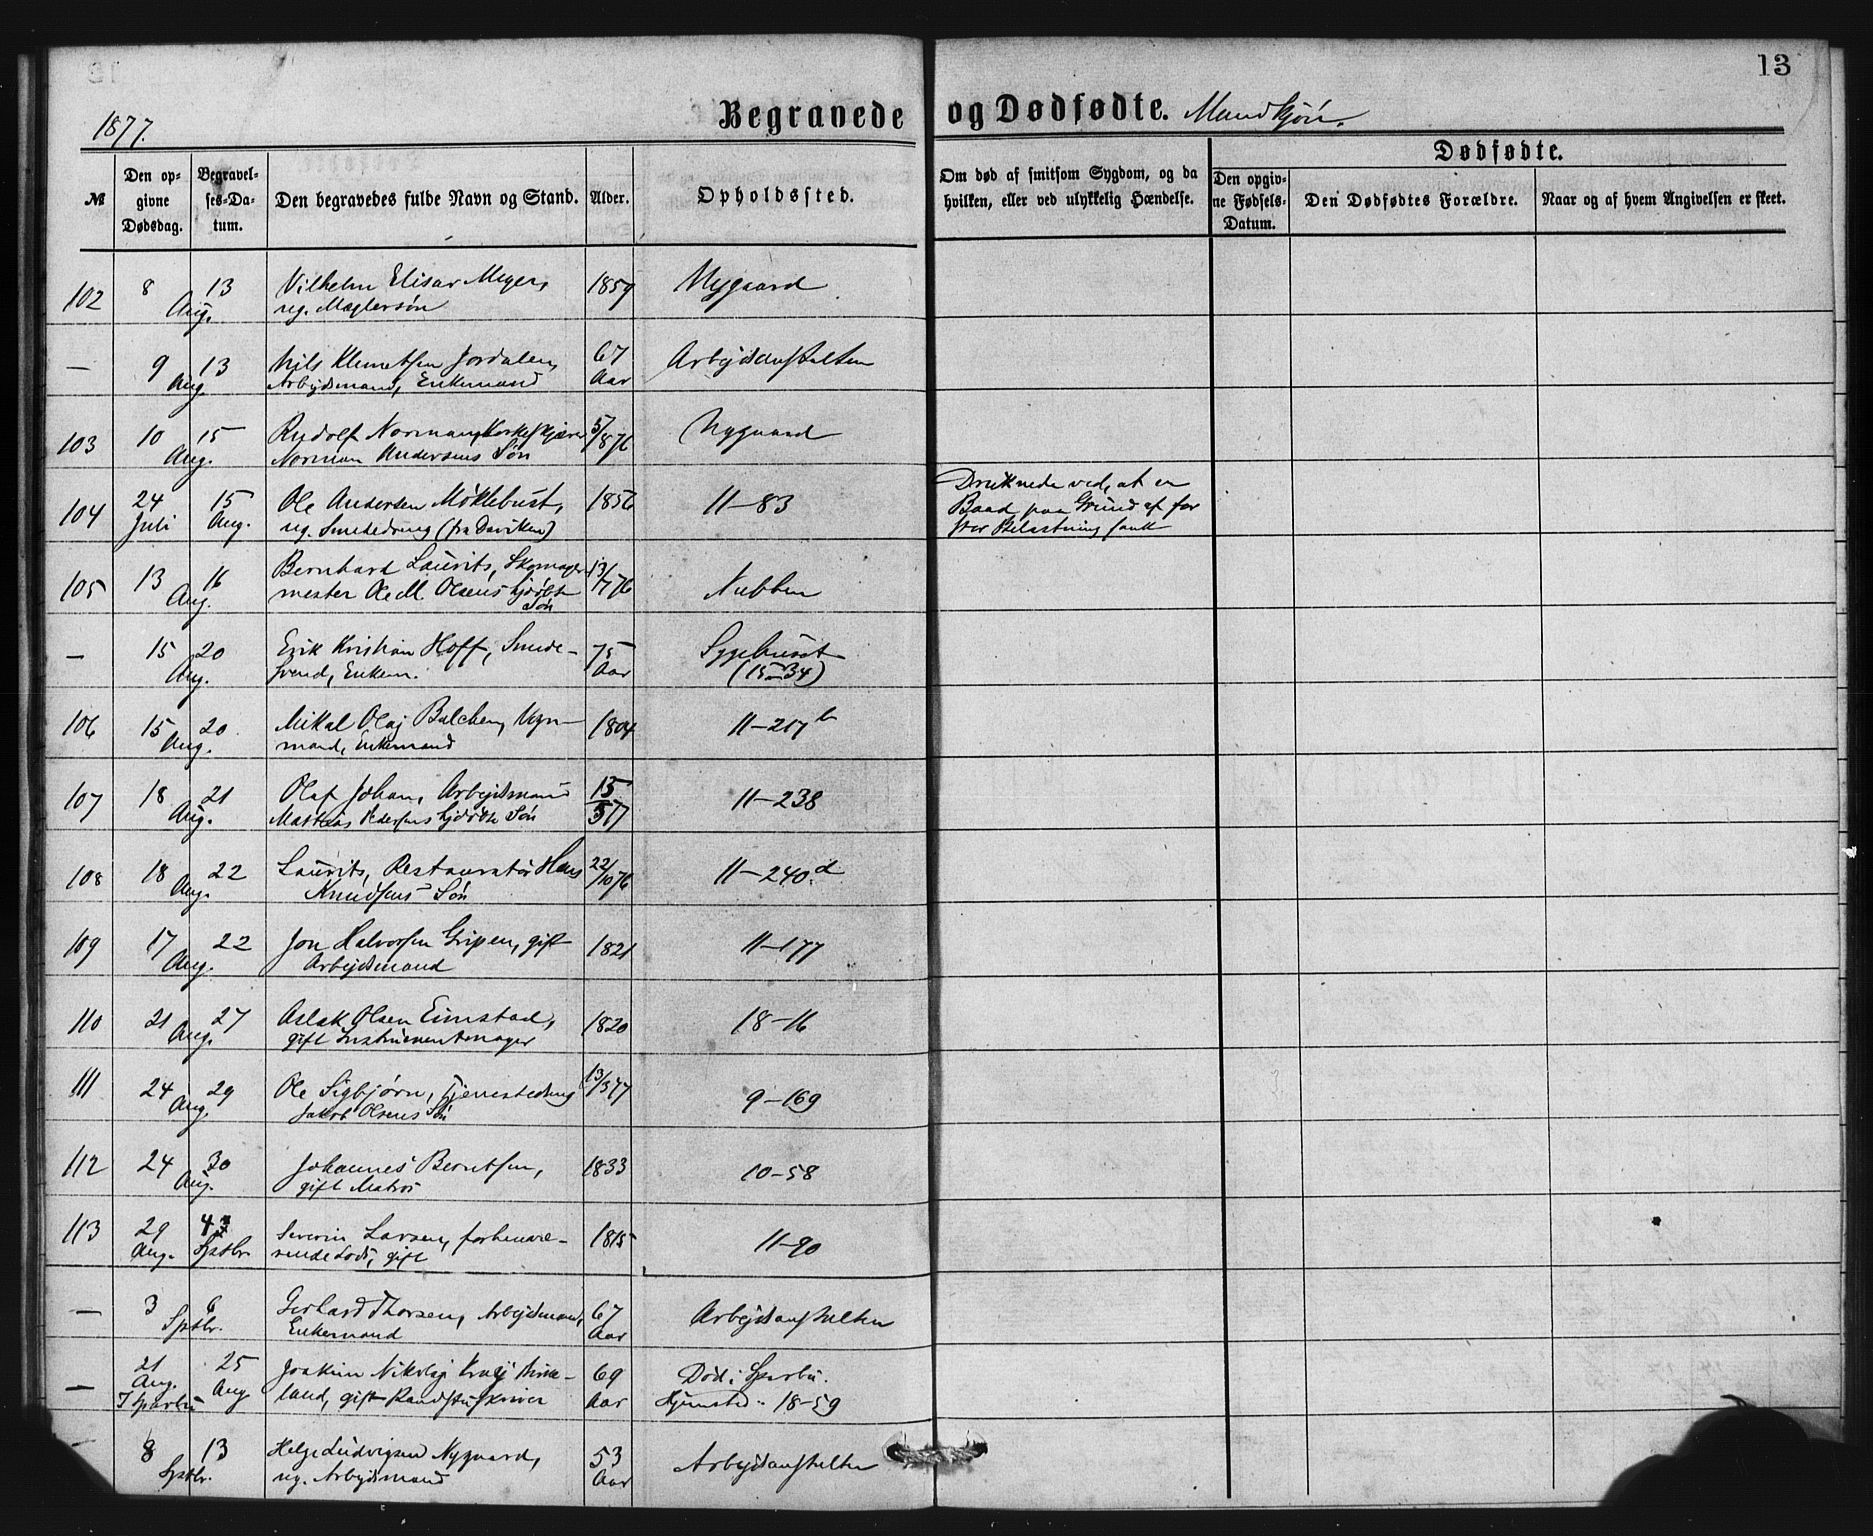 13
1877.
Begravede og Dødfødte. Mandkjøn.
Dødfødte.
№
Den opgivne Dødsdag.
Begravelses-Datum.
Den begravedes fulde Navn og Stand.
Alder.
Opholdssted.
Om død af smitsom Sygdom, og da hvilken, eller ved ulykkelig Hændelse.
Den opgivne Fødsels-Datum.
Den Dødfødtes Forældre.
Naar og af hvem Angivelsen er skeet.
102 8 13 Vilhelm Elisar Meyer, 1859 Nygaard
Aug. ug. Mæglersøn
— 9 13 Nils Klemetsen Jordalen, 67 Arbejdsanstalten
Aug. Arbejdsmand, Enkemand Aar
103 10 15 Rudolf Norman, 5/8 76 Nygaard
Aug. Norman Andersens Søn
104 24 15 Ole Andersen Møklebust, 1856 11–83 Druknede ved, at en
Juli Aug. ug. Smededreng (fra Daviken) Baad paa Grund af for
stor Belastning sank
105 13 16 Bernhard Laurits, Skomager- 13/7 76 Nubben
Aug. mester Ole M. Olsens
Søn
— 15 20 Erik Kristian Hoff, Smede- 75 Sygehuset
Aug. svend, Enkem. Aar (15–34)
106 15 20 Mikal Olaj Balchen, Vogn- 1804 11–217 b
Aug. mand, Enkemand
107 18 21 Olaf Johan, Arbejdsmand 15/5 77 11–238
Aug. Mathias Pedersens Søn
108 18 22 Laurits, Restauratør Hans 22/10 76 11–240 d
Aug. Knudsens Søn
109 17 22 Jon Halvorsen Gripen, gift 1821 11–177
Aug. Arbejdsmand
110 21 27 Aslak Olsen Eimstad, 1820 18–16
Aug. gift Instrumentmager
111 24 29 Ole Sigbjørn, Tjenestedreng 13/3 77 9–169
Aug. Jakob Olsens Søn
112 24 30 Johannes Berntsen, 1833 10–58
Aug. gift Matros
113 29 4 Severin Larsen, forhenvæ- 1815 11–90
Aug. Sptbr. rende Lods, gift
— 3 6 Gerhard Thorsen, Arbejdsmand, 67 Arbejdsanstalten
Sptbr. Enkemand Aar
— 21 25 Joakim Nikolaj 69 Død i Sparbu.
Aug. Aug land, gift Aar Hjemsted 18–59
I Sparbu
— 8 13 Helge Ludvigsen Nygaard, 53 Arbejdsanstalten
Sptbr. ug. Arbejdsmand Aar